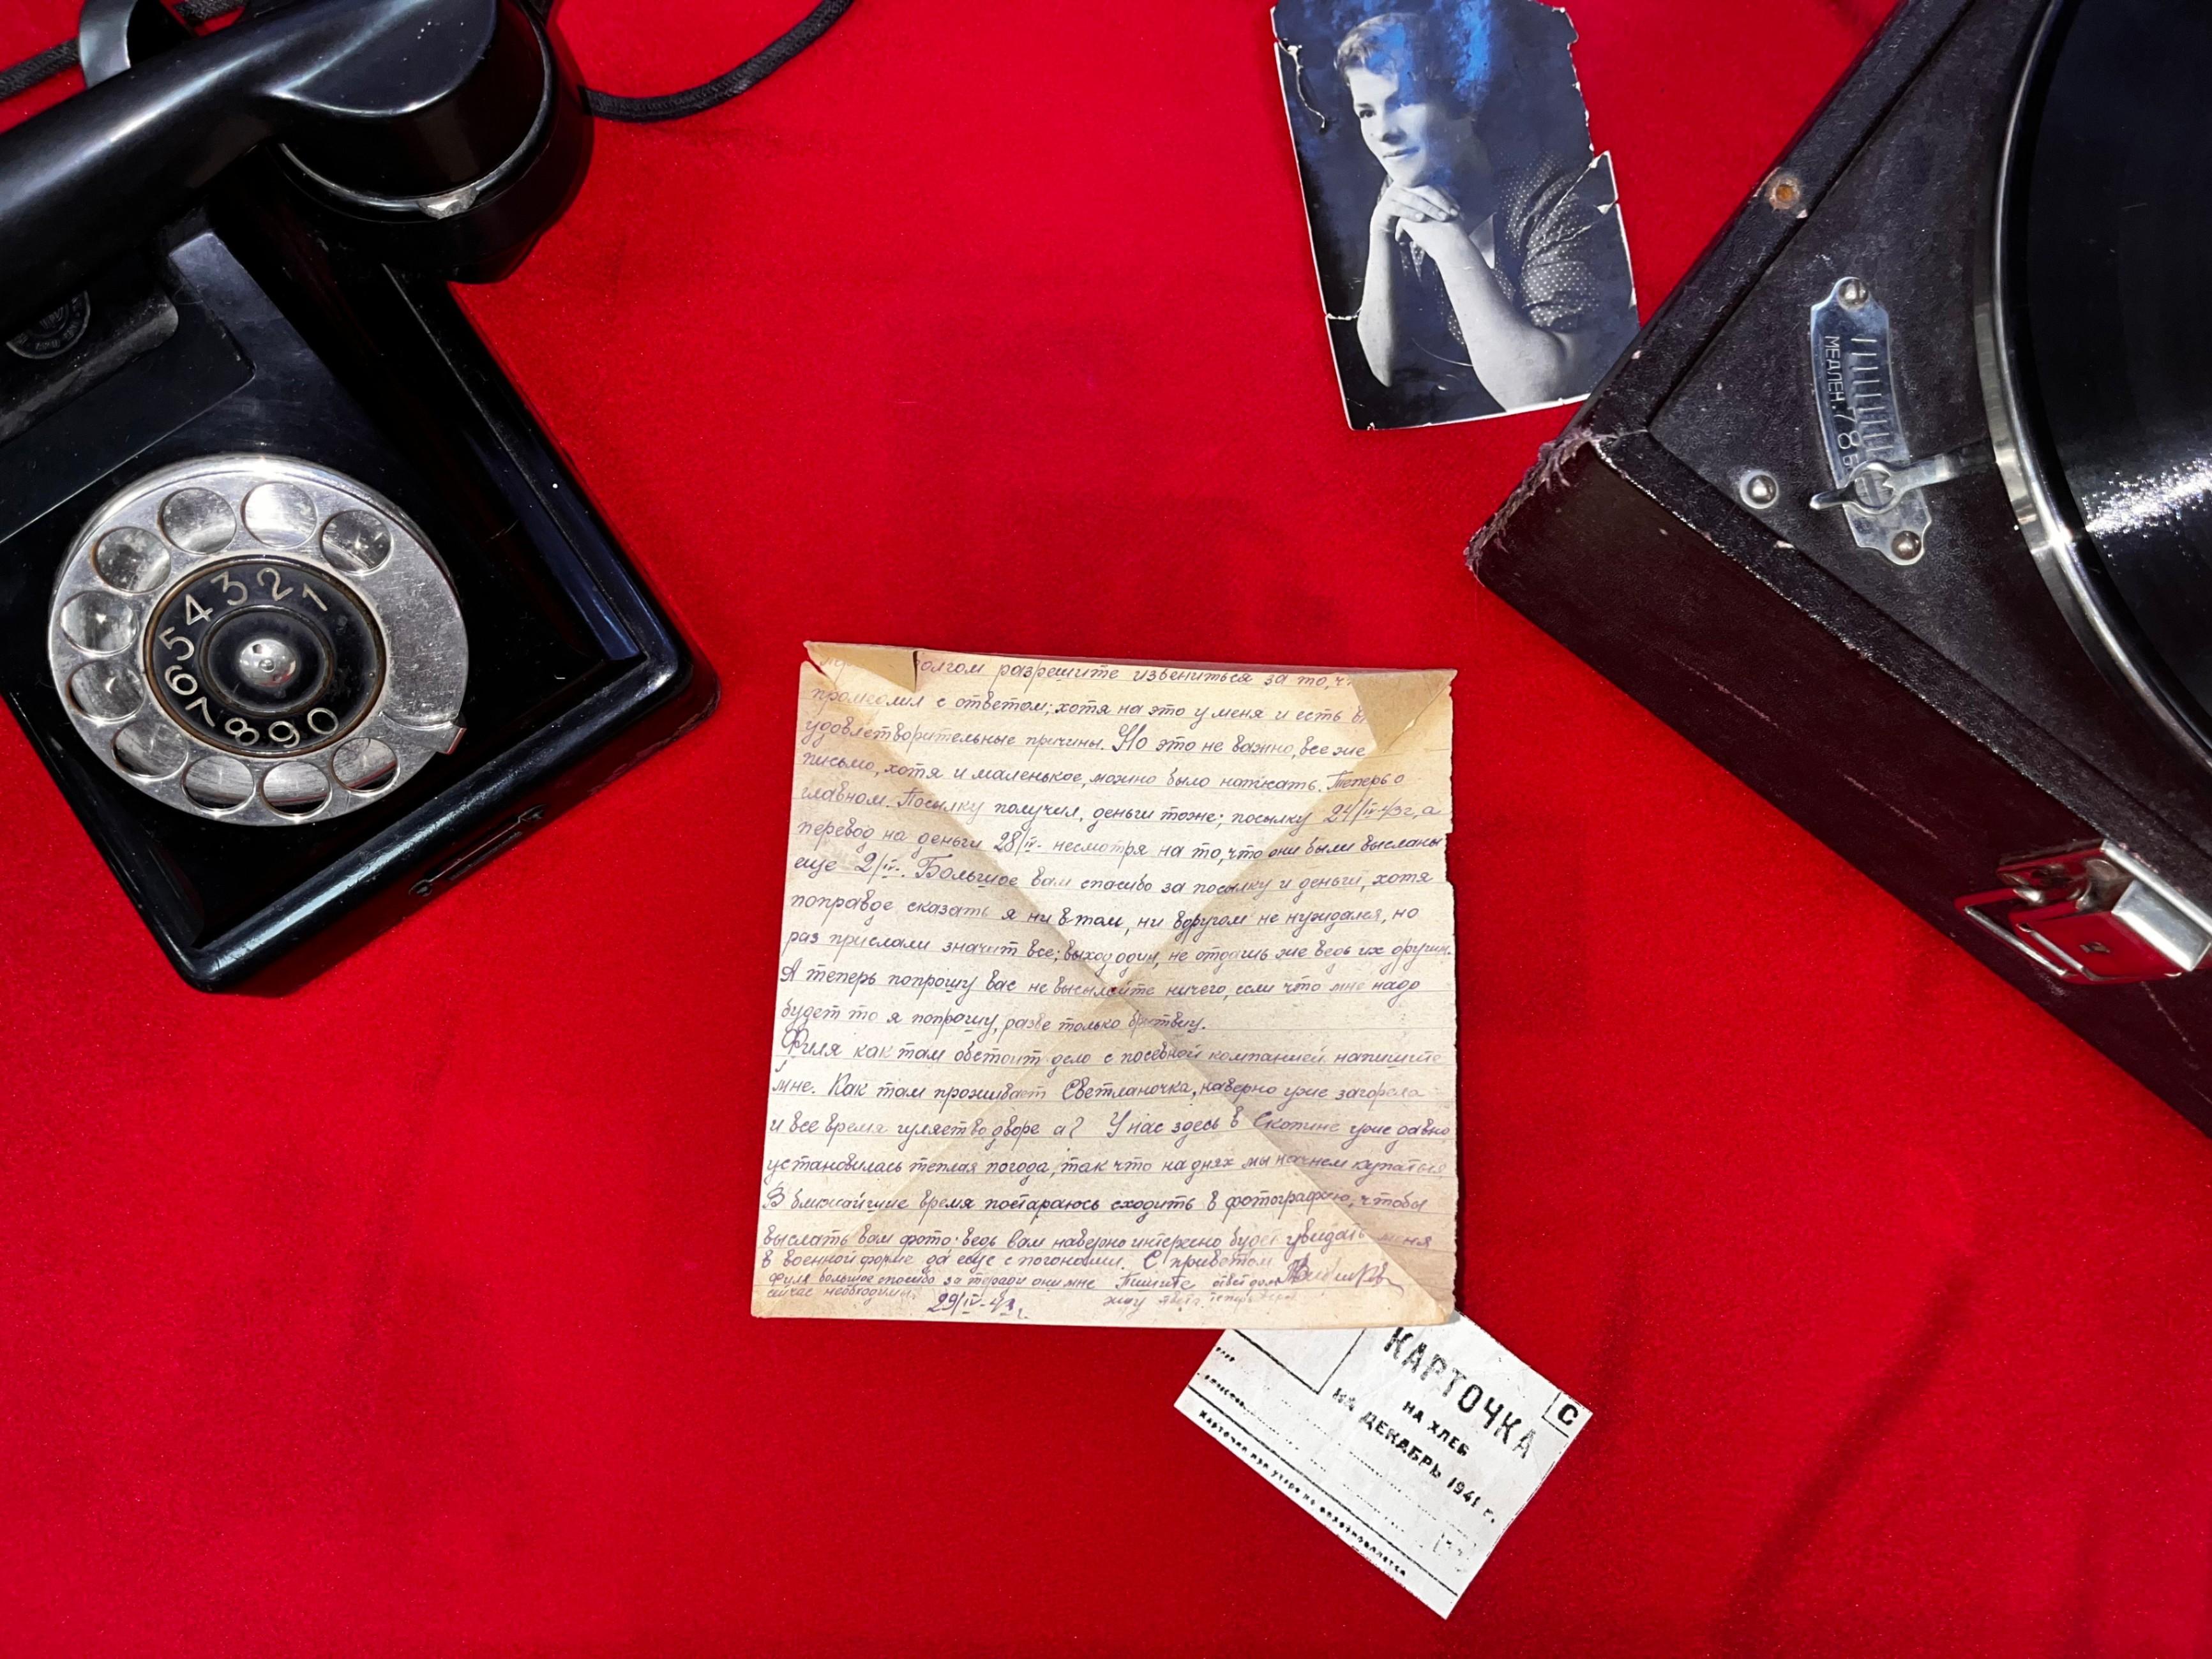 1
2
3
4
5
6
7
8
9
0
МЕДЛЕН. 78
олгом разрешите извениться за то, ч
промедлил с ответом; хотя на это у меня и есть
удовлетворительные причины. Но это не важно, все же
письмо, хотя и маленькое, можно было написать. Теперь о
главном. Посылку получил, деньги тоже; посылку 24/IV-43г, а
перевод на деньги 28/IV- несмотря на то, что они были высланы
еще 2/IV. Большое вам спасибо за посылку и деньги, хотя
поправде сказать я ни втом, ни вдругом не нуждался, но
раз прислали значит все; выход один, не отдашь же ведь их другим.
А теперь попрошу вас не высылайте ничего, если что мне надо
будет то я попрошу, разве только бритву.
Филя как там обстоит дело с посевной компанией напишите
мне. Как там проживает Светланочка, наверно уже загорела
и все время гуляет во дворе а? У нас здесь в Скопине уже давно
установилась теплая погода, так что на днях мы начнем купаться
В ближайшие время постараюсь сходить в фотографию, чтобы
выслать вам фото. ведь вам наверно интересно будет увидать меня
в военной форме да еще с погонами. С приветом
Филя большое спасибо за тетради они мне Пишите ответ
сейчас необходимы. жду
29/IV-43г.
КАРТОЧКА
С
НА ХЛЕБ
НА ДЕКАБРЬ 1941 г.
Карточка при утере не возобновляется